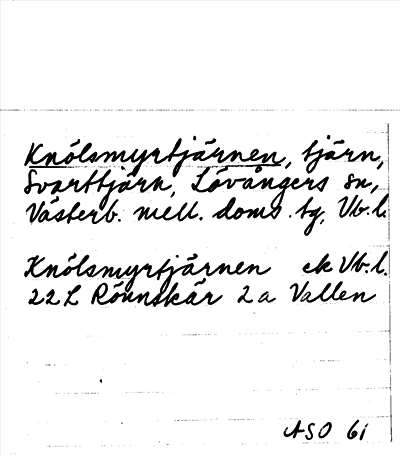 Knölsmyrtjärnen, tjärn,
Svarttjärn, Lövångers sn,
Västerb. mell. doms.tg, Vb.l.
Knölsmyrtjärnen ek Vb.l.
22L Rönnskär 2a Vallen
ASO 61